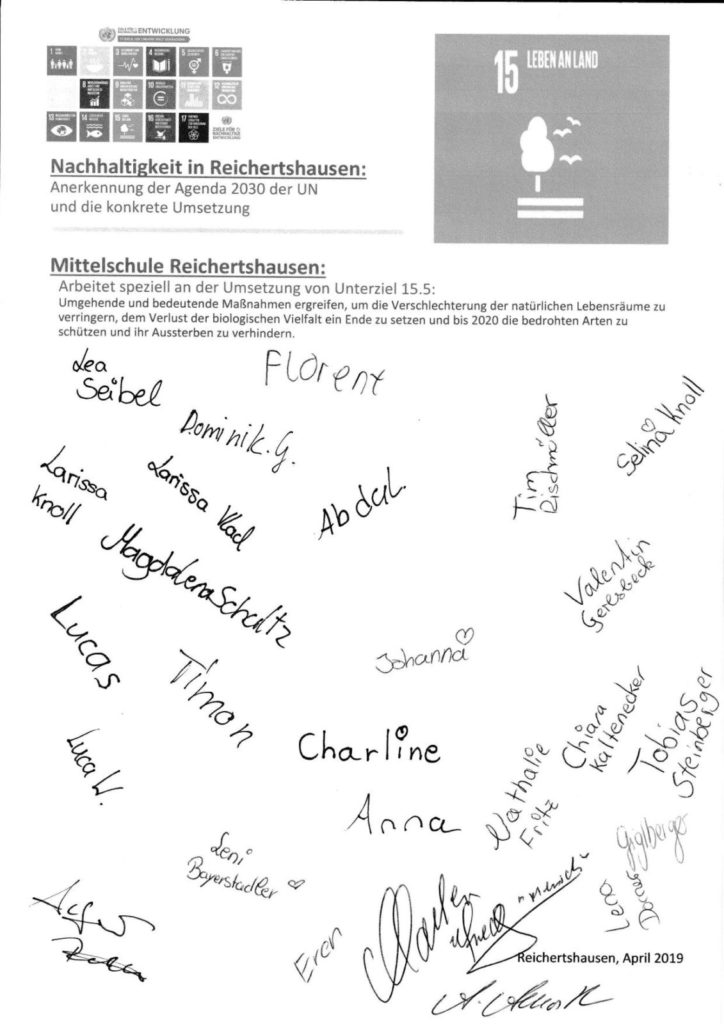 ENTWICKLUNG
ZIELE FÜR
NACHHALTIGE
ENTWICKLUNG
15 LEBEN AN LAND
Nachhaltigkeit in Reichertshausen:
Anerkennung der Agenda 2030 der UN
und die konkrete Umsetzung
Mittelschule Reichertshausen:
Arbeitet speziell an der Umsetzung von Unterziel 15.5:
Umgehende und bedeutende Maßnahmen ergreifen, um die Verschlechterung der natürlichen Lebensräume zu
verringern, dem Verlust der biologischen Vielfalt ein Ende zu setzen und bis 2020 die bedrohten Arten zu
schützen und ihr Aussterben zu verhindern.
Lea
Seibel
Florent
Dominik.G.
Tim
Rischmüller
Selina Knoll
Larissa
Knoll
Larissa Vlad
Abdul.
Magdalena Schultz
Valentin
Geresbeck
Lucas
Timon
Johanna
Chiara
Kaltenecker
Tobias
Steinberger
Luca W.
Charline
Nathalie
Fritz
Anna
Giglberger
Leni
Bayerstadler
Lena
Eren
Reichertshausen, April 2019